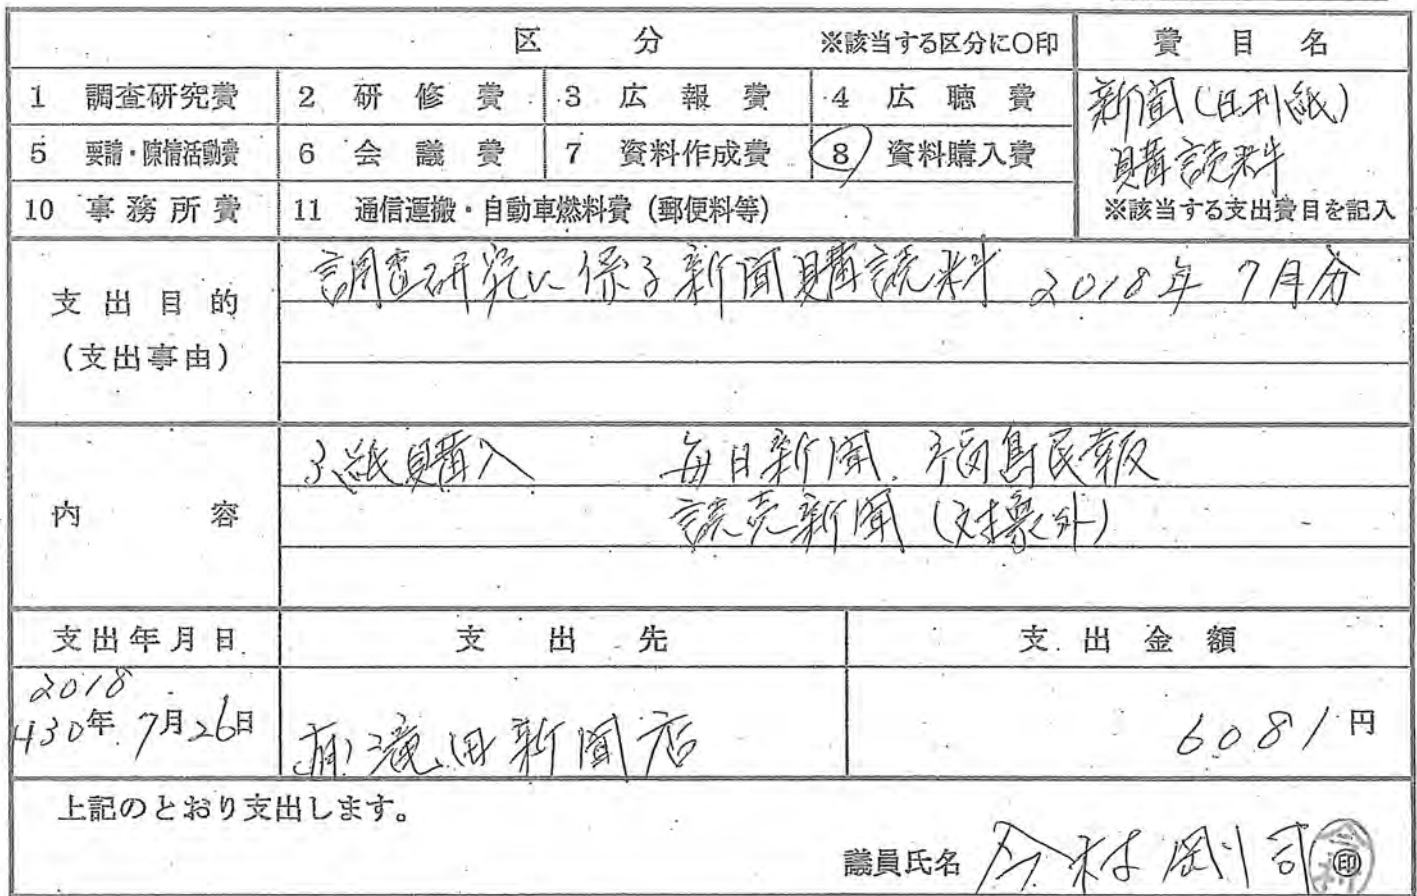 区 分 ※該当する区分に〇印 費目名
1 調査研究費 2 研修費 3 広報費 4 広聴費 新聞(日刊紙)
5 要請・陳情活動費 6 会議費 7 資料作成費 8 資料購入費 購読料
10 事務所費 11 通信運搬・自動車燃料費(郵便料等) ※該当する支出費目を記入
支出目的
(支出事由)
調査研究に係る新聞購読料 2018年 7月分
内容
3紙購入 毎日新聞、福島民報
読売新聞(対象外)
支出年月日 支出先 支出金額
2018
H30年 7月26日 (有)滝田新聞店 6081円
上記のとおり支出します。
議員氏名 今村剛司 ㊞